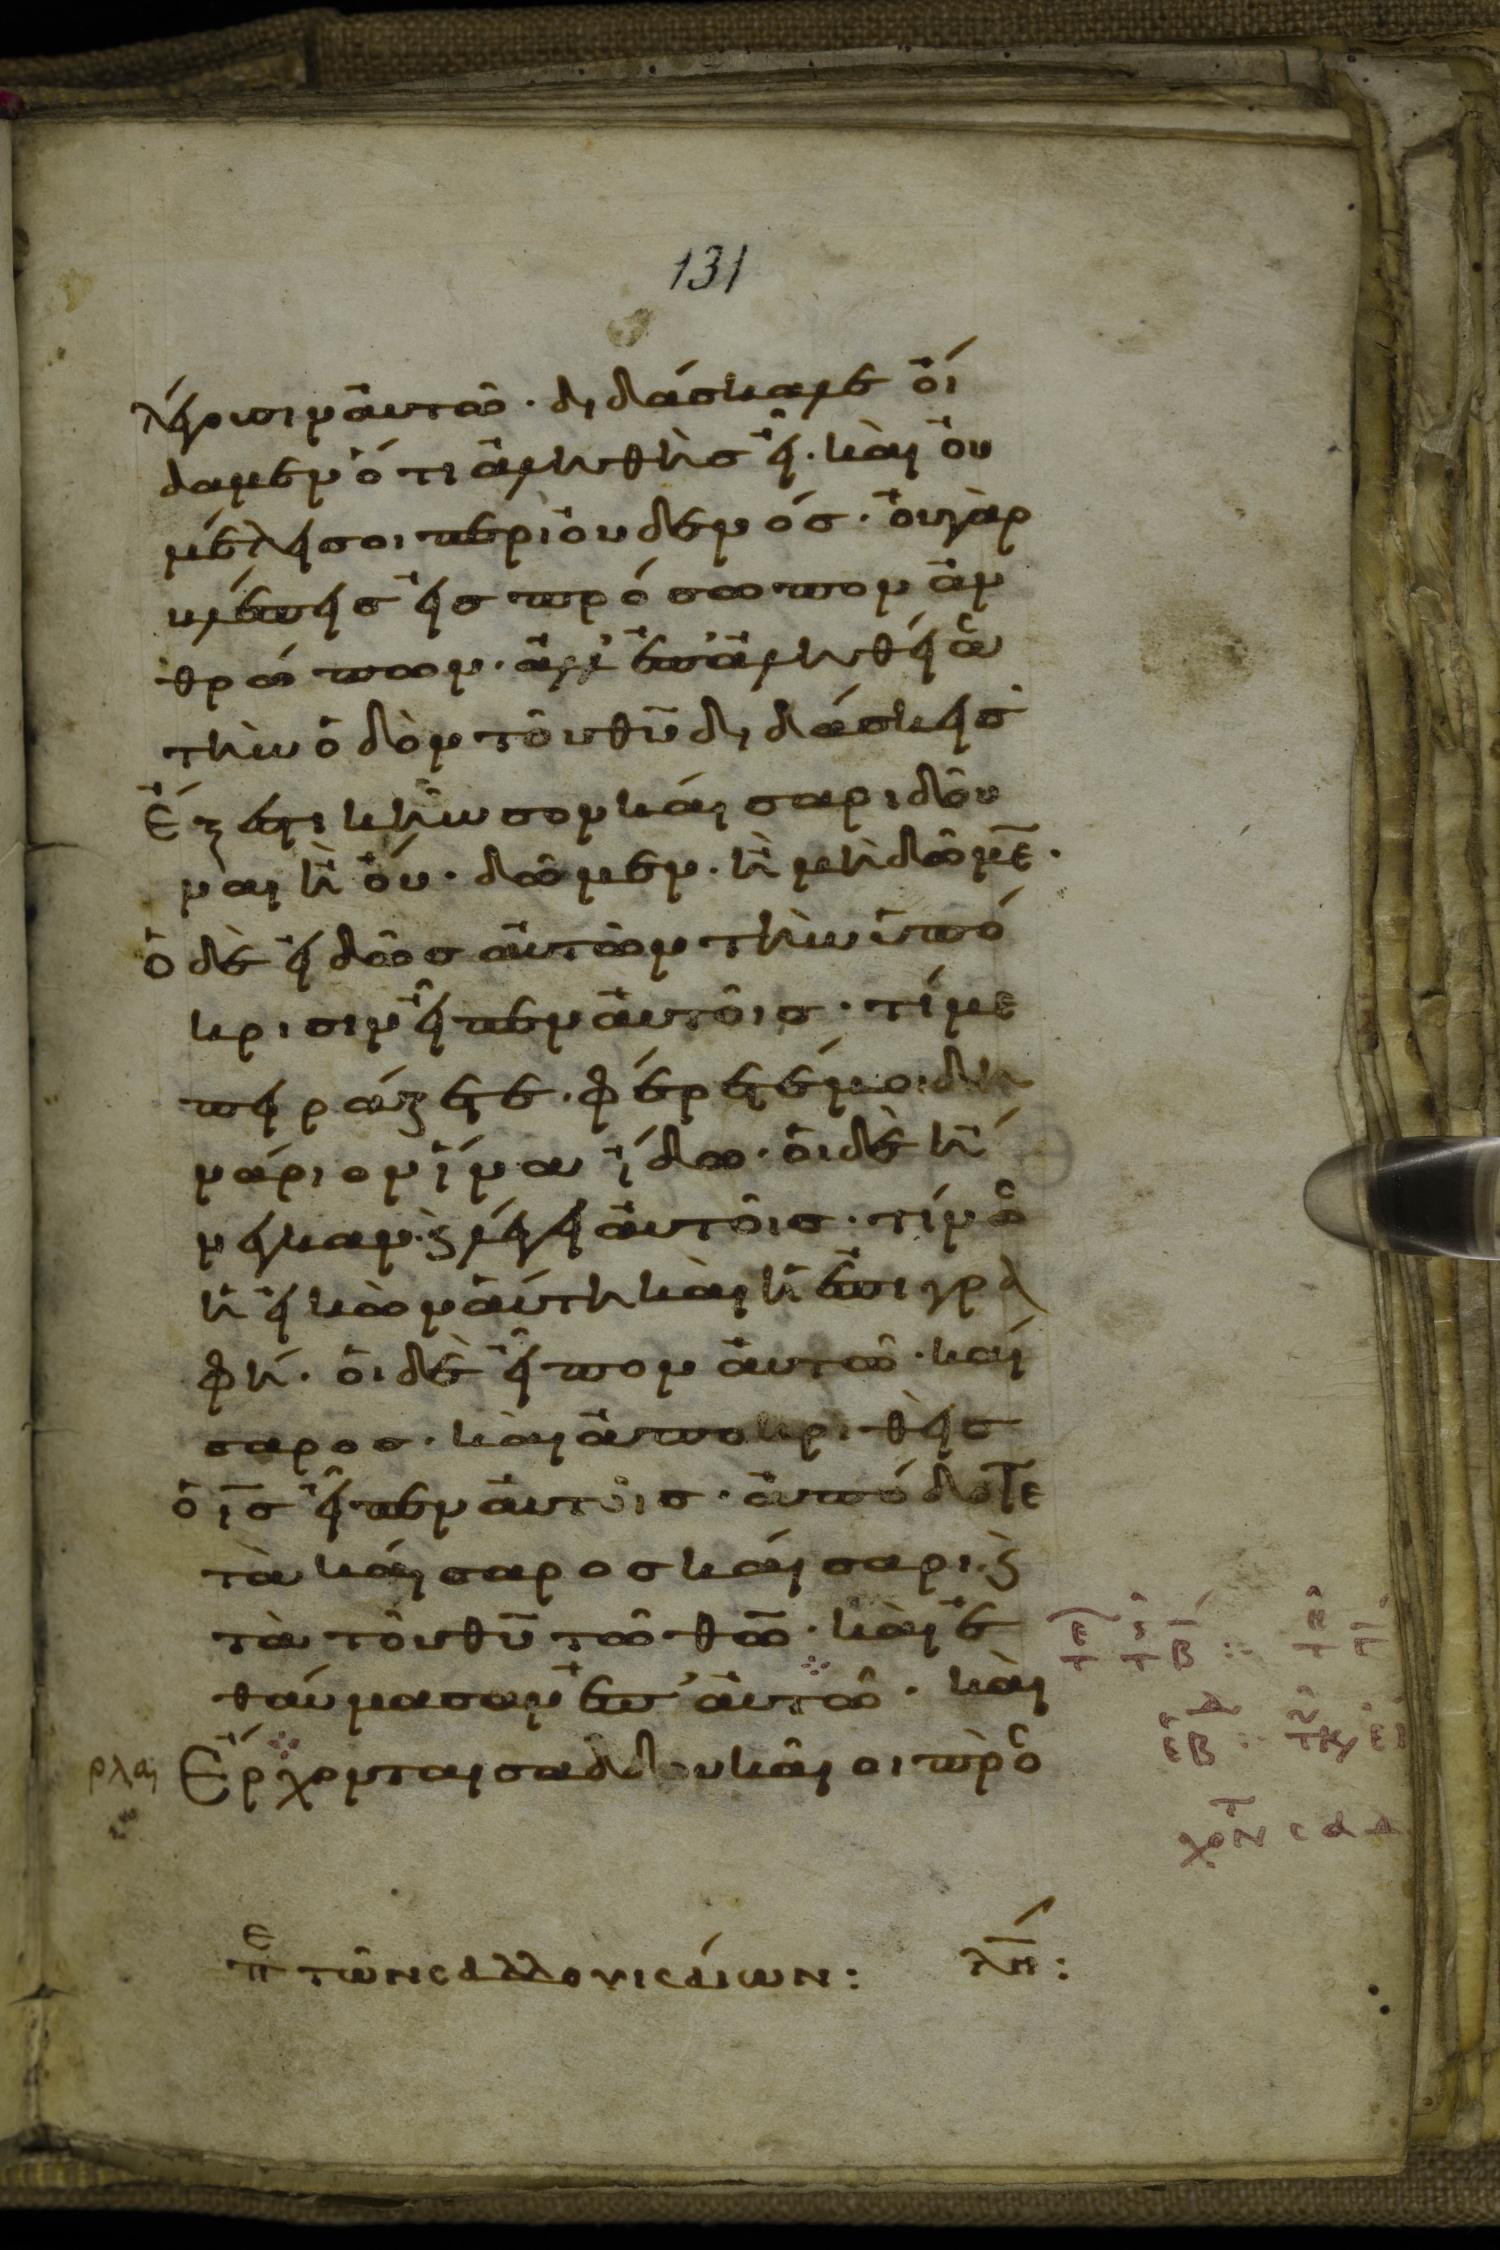 131
λέγουσιν αὐτῶ · διδάσκαλε οἴ
δαμεν ὅτι ἀληθὴς εἶ · καὶ οὐ
μέλει σοι περὶ οὐδενός · οὐ γὰρ
βλέπεις εἰς πρόσωπον ἀν
θρώπων · ἀλλ' ἐπ' ἀληθείας
τὴν ὁδὸν τοῦ θῦ διδάσκεις
Ἔξεστι κῆνσον καίσαρι δοῦ
ναι ἢ οὔ · δῶμεν · ἢ μὴ δῶμε̄ ·
ὁ δὲ εἰδὼς αὐτῶν τὴν ὑπό
κρισιν εἶπεν αὐτοῖς · τί με
πειράζετε · φέρετέ μοι δη
νάριον ἵνα ἴδω · οἱ δὲ ἤ
νεγκαν · καὶ λέγει αὐτοῖς · τίνος
ἡ εἰκὼν αὕτη καὶ ἡ ἐπιγρα
φή · οἱ δὲ εἶπον αὐτῶ · καί
σαρος · καὶ ἀποκριθεὶς
ὁ ῑς εἶπεν αὐτοῖς · ἀπόδοτε
τὰ καίσαρος καίσαρι · καὶ
τὰ τοῦ θῦ τῶ θῶ · καὶ ἐ
θαύμασαν ἐπ' αὐτῶ · καὶ
ρλα Ἔρχονται σαδδουκαῖοι πρὸς
πε τῶν σαδδουκαίων : λη :